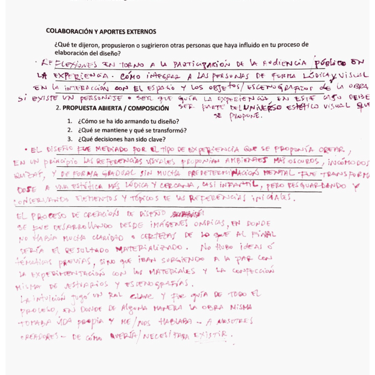 COLABORACIÓN Y APORTES EXTERNOS
¿Qué te dijeron, propusieron o sugirieron otras personas que haya influido en tu proceso de
elaboración del diseño?
• REFLEXIONES EN TORNO A LA PARTICIPACIÓN DE LA AUDIENCIA PÚBLICO EN
LA EXPERIENCIA. CÓMO INTEGRAR A LAS PERSONAS DE FORMA LÚDICA Y VISUAL
EN LA INTERACCIÓN CON EL ESPACIO Y LOS OBJETOS ESCENOGRÁFICOS DE LA OBRA
SI EXISTE UN PERSONAJE O SER QUE GUÍA LA EXPERIENCIA, EN ESTE CASO DEBE
SER PARTE DEL UNIVERSO ESTÉTICO VISUAL QUE
SE PROPONE.
2. PROPUESTA ABIERTA / COMPOSICIÓN
1. ¿Cómo se ha ido armando tu diseño?
2. ¿Qué se mantiene y qué se transformó?
3. ¿Qué decisiones han sido clave?
• EL DISEÑO FUE MEDIADO POR EL TIPO DE EXPERIENCIA QUE SE PROPONÍA CREAR,
EN UN PRINCIPIO LAS REFERENCIAS VISUALES PROPONÍAN AMBIENTES MÁS OSCUROS, INCÓMODOS
Y DE FORMA GRADUAL SIN MUCHA PREDETERMINACIÓN MENTAL FUE TRANSFORMÁNDOSE
A UNA ESTÉTICA MÁS LÚDICA Y CERCANA, CASI INFANTIL, PERO RESGUARDANDO Y
CONSERVANDO ELEMENTOS Y TÓPICOS DE LAS REFERENCIAS INICIALES.
EL PROCESO DE CREACIÓN DE DISEÑO
SE FUE DESARROLLANDO DESDE IMÁGENES ONÍRICAS, EN DONDE
NO HABÍA MUCHA CLARIDAD O CERTEZAS DE LO QUE AL FINAL
SERÍA EL RESULTADO MATERIALIZADO. NO HUBO IDEAS O
PREVIAS, SINO QUE IBAN SURGIENDO A LA PAR CON
LA EXPERIMENTACIÓN CON LOS MATERIALES Y LA CONFECCIÓN
MISMA DE VESTUARIOS Y ESCENOGRAFÍAS.
LA INTUICIÓN JUGÓ UN ROL CLAVE Y FUE GUÍA DE TODO EL
PROCESO, EN DONDE DE ALGUNA MANERA LA OBRA MISMA
TOMABA VIDA PROPIA Y ME/NOS HABLABA – A NOSOTRES
CREADORES – DE CÓMO QUERÍA/NECESITABA EXISTIR.